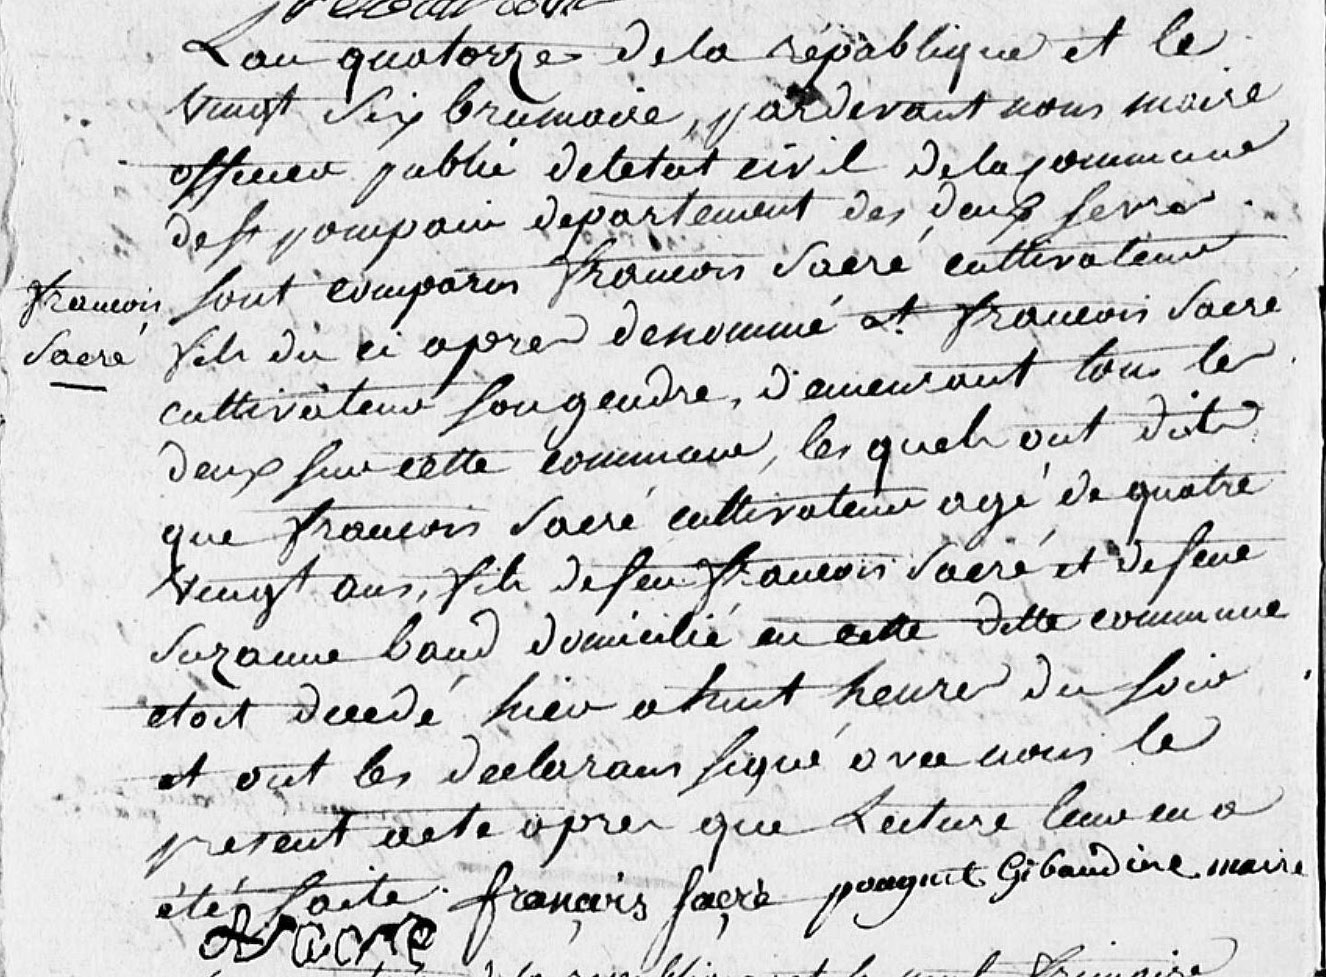 L'an quatorze de la république et le
vingt six brumaire, pardevant nous maire
officier public de letat civil de la commune
de st pompain departement des deux sevres
sont comparus francois Sacré cultivateur
francois
Sacré
fils du ci apres denommé et francois Sacré
cultivateur son gendre, demeurant tous les
deux sur cette commune, les quels ont dit
que francois Sacré cultivateur agé de quatre
vingt ans, fils de feu francois Sacré et de feue
Suzanne baud domicilié en cette ditte commune
etoit decedé hier a huit heures du soir
et ont les declarans signé avec nous le
present acte apres que Lecture leur en a
été faite. françois sacré pougnet Gibaudière maire
Sacré